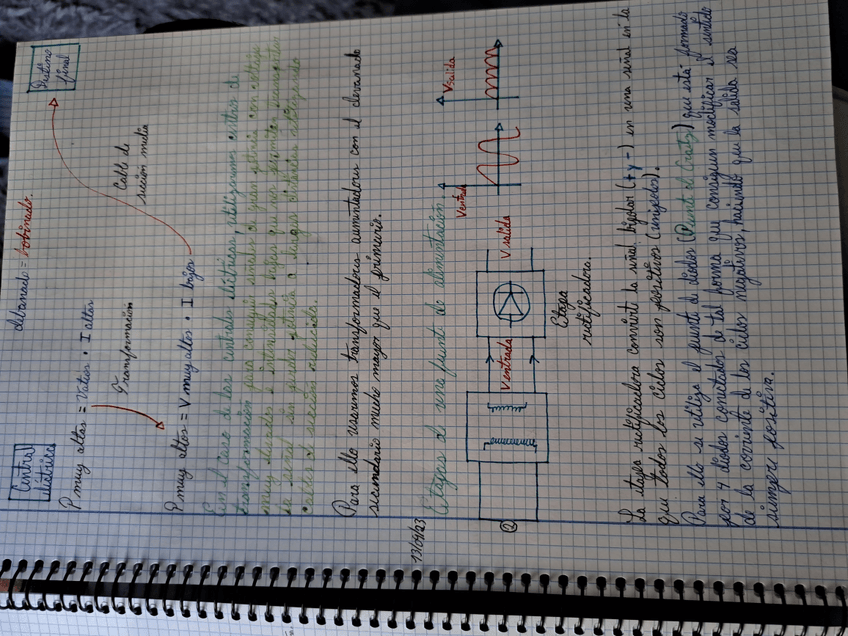 devanado = bobinado.
Central
eléctrica
Destino
final
P muy altos = V altos · I altos
Transformación
Cable de
sección media
P muy altos = V muy altos · I bajos
En el caso de las centrales eléctricas, utilizamos centros de
transformación para conseguir señales de gran potencia con voltajes
muy elevados e intensidades bajas que nos permiten transmitir
la señal sin perder potencia a largas distancias utilizando
cables de sección reducida.
Para ello usaremos transformadores aumentadores con el devanado
secundario mucho mayor que el primario.
13/04/23
Etapas de una fuente de alimentación.
Ventrada
Vsalida
Ventrada
Vsalida
Etapa
rectificadora.
La etapa rectificadora convierte la señal bipolar (+ y -) en una señal en la
que todos los ciclos son positivos (unipolar).
Para ello se utiliza el puente de diodos (Puente de Graetz) que está formado
por 4 diodos conectados de tal forma que consiguen modificar el sentido
de la corriente de los ciclos negativos, haciendo que la salida sea
siempre positiva.